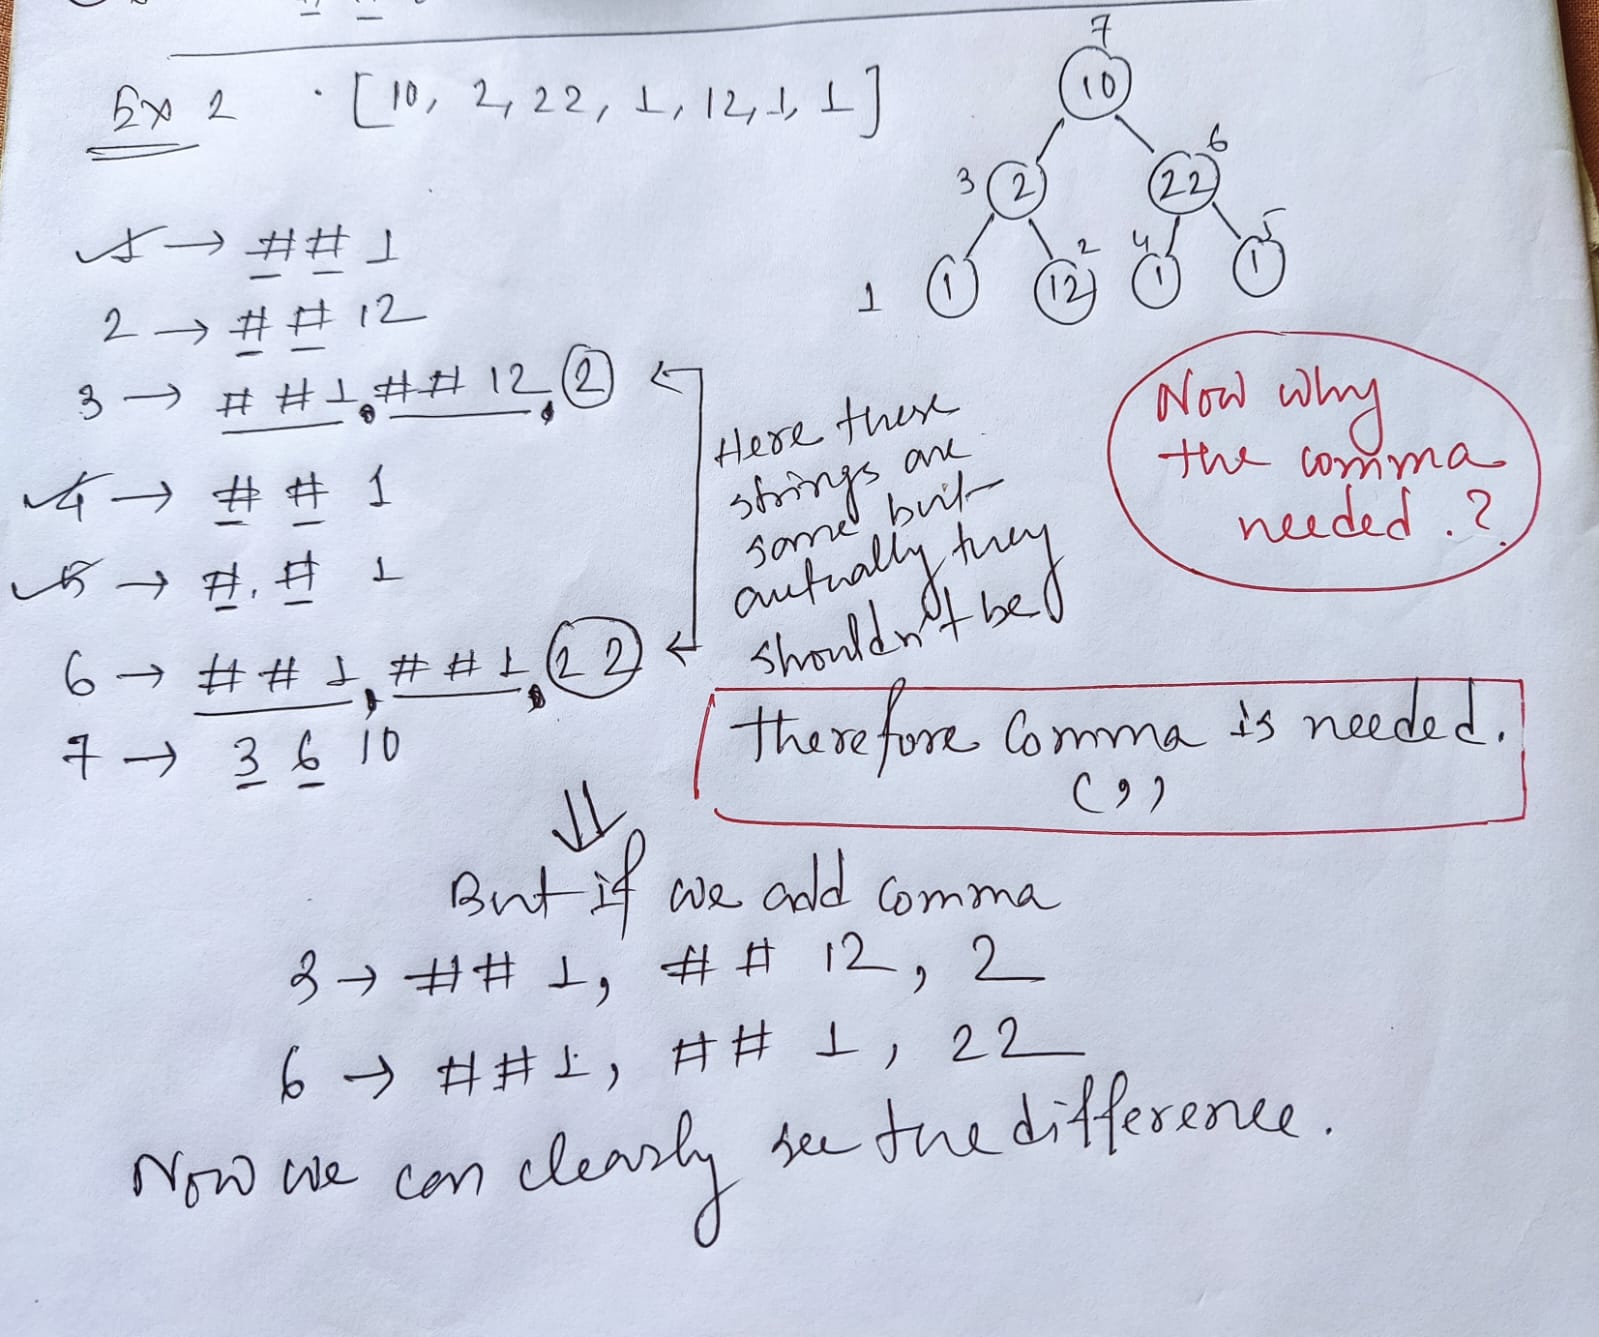 Ex 2 . [10, 2, 22, 1, 12, 1, 1]
7
10
3 2 22 6
1 1 12 2 4 1 1 5
1 → # # 1
2 → # # 12
3 → # # 1, # # 12, 2
4 → # # 1
5 → #. # 1
6 → # # 1, # # 1, 22
7 → 3 6 10
Here these
strings are
same but
actually they
shouldn't be
Now why
the comma
needed.?
Therefore Comma is needed.
(,)
⇓
But if we add comma
3 → # # 1, # # 12, 2
6 → # # 1, # # 1, 22
Now we can clearly see the difference.